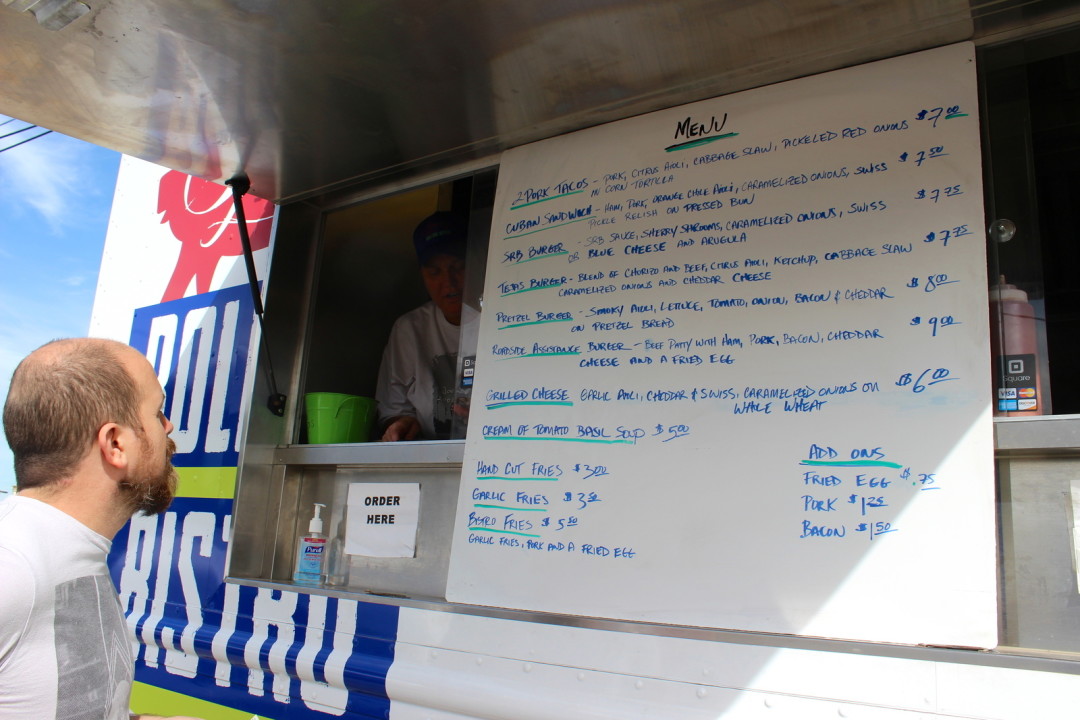 MENU
2 PORK TACOS - PORK, CITRUS AIOLI, CABBAGE SLAW, PICKELED RED ONIONS $7.00
W/ CORN TORTILLA
CUBAN SANDWICH - HAM, PORK, ORANGE CHILE AIOLI, CARAMELIZED ONIONS, SWISS $7.50
PICKLE RELISH ON PRESSED BUN
SRB BURGER - SRB SAUCE, SHERRY SHROOMS, CARAMELIZED ONIONS, SWISS $7.75
OR BLUE CHEESE AND ARUGULA
TEJAS BURGER - BLEND OF CHORIZO AND BEEF, CITRUS AIOLI, KETCHUP, CABBAGE SLAW $7.75
CARAMELIZED ONIONS AND CHEDDAR CHEESE
PRETZEL BURGER - SMOKY AIOLI, LETTUCE, TOMATO, ONION, BACON & CHEDDAR $8.00
ON PRETZEL BREAD
ROADSIDE ASSISTANCE BURGER - BEEF PATTY WITH HAM, PORK, BACON, CHEDDAR $9.00
CHEESE AND A FRIED EGG
GRILLED CHEESE GARLIC AIOLI, CHEDDAR & SWISS, CARAMELIZED ONIONS ON $6.00
WHOLE WHEAT
CREAM OF TOMATO BASIL SOUP $5.00
HAND CUT FRIES $3.00
GARLIC FRIES $3.50
BISTRO FRIES $5.50
GARLIC FRIES, PORK AND A FRIED EGG
ADD ONS
FRIED EGG $.75
PORK $1.25
BACON $1.50
ORDER
HERE
Purell
Square
VISA
BISTRO